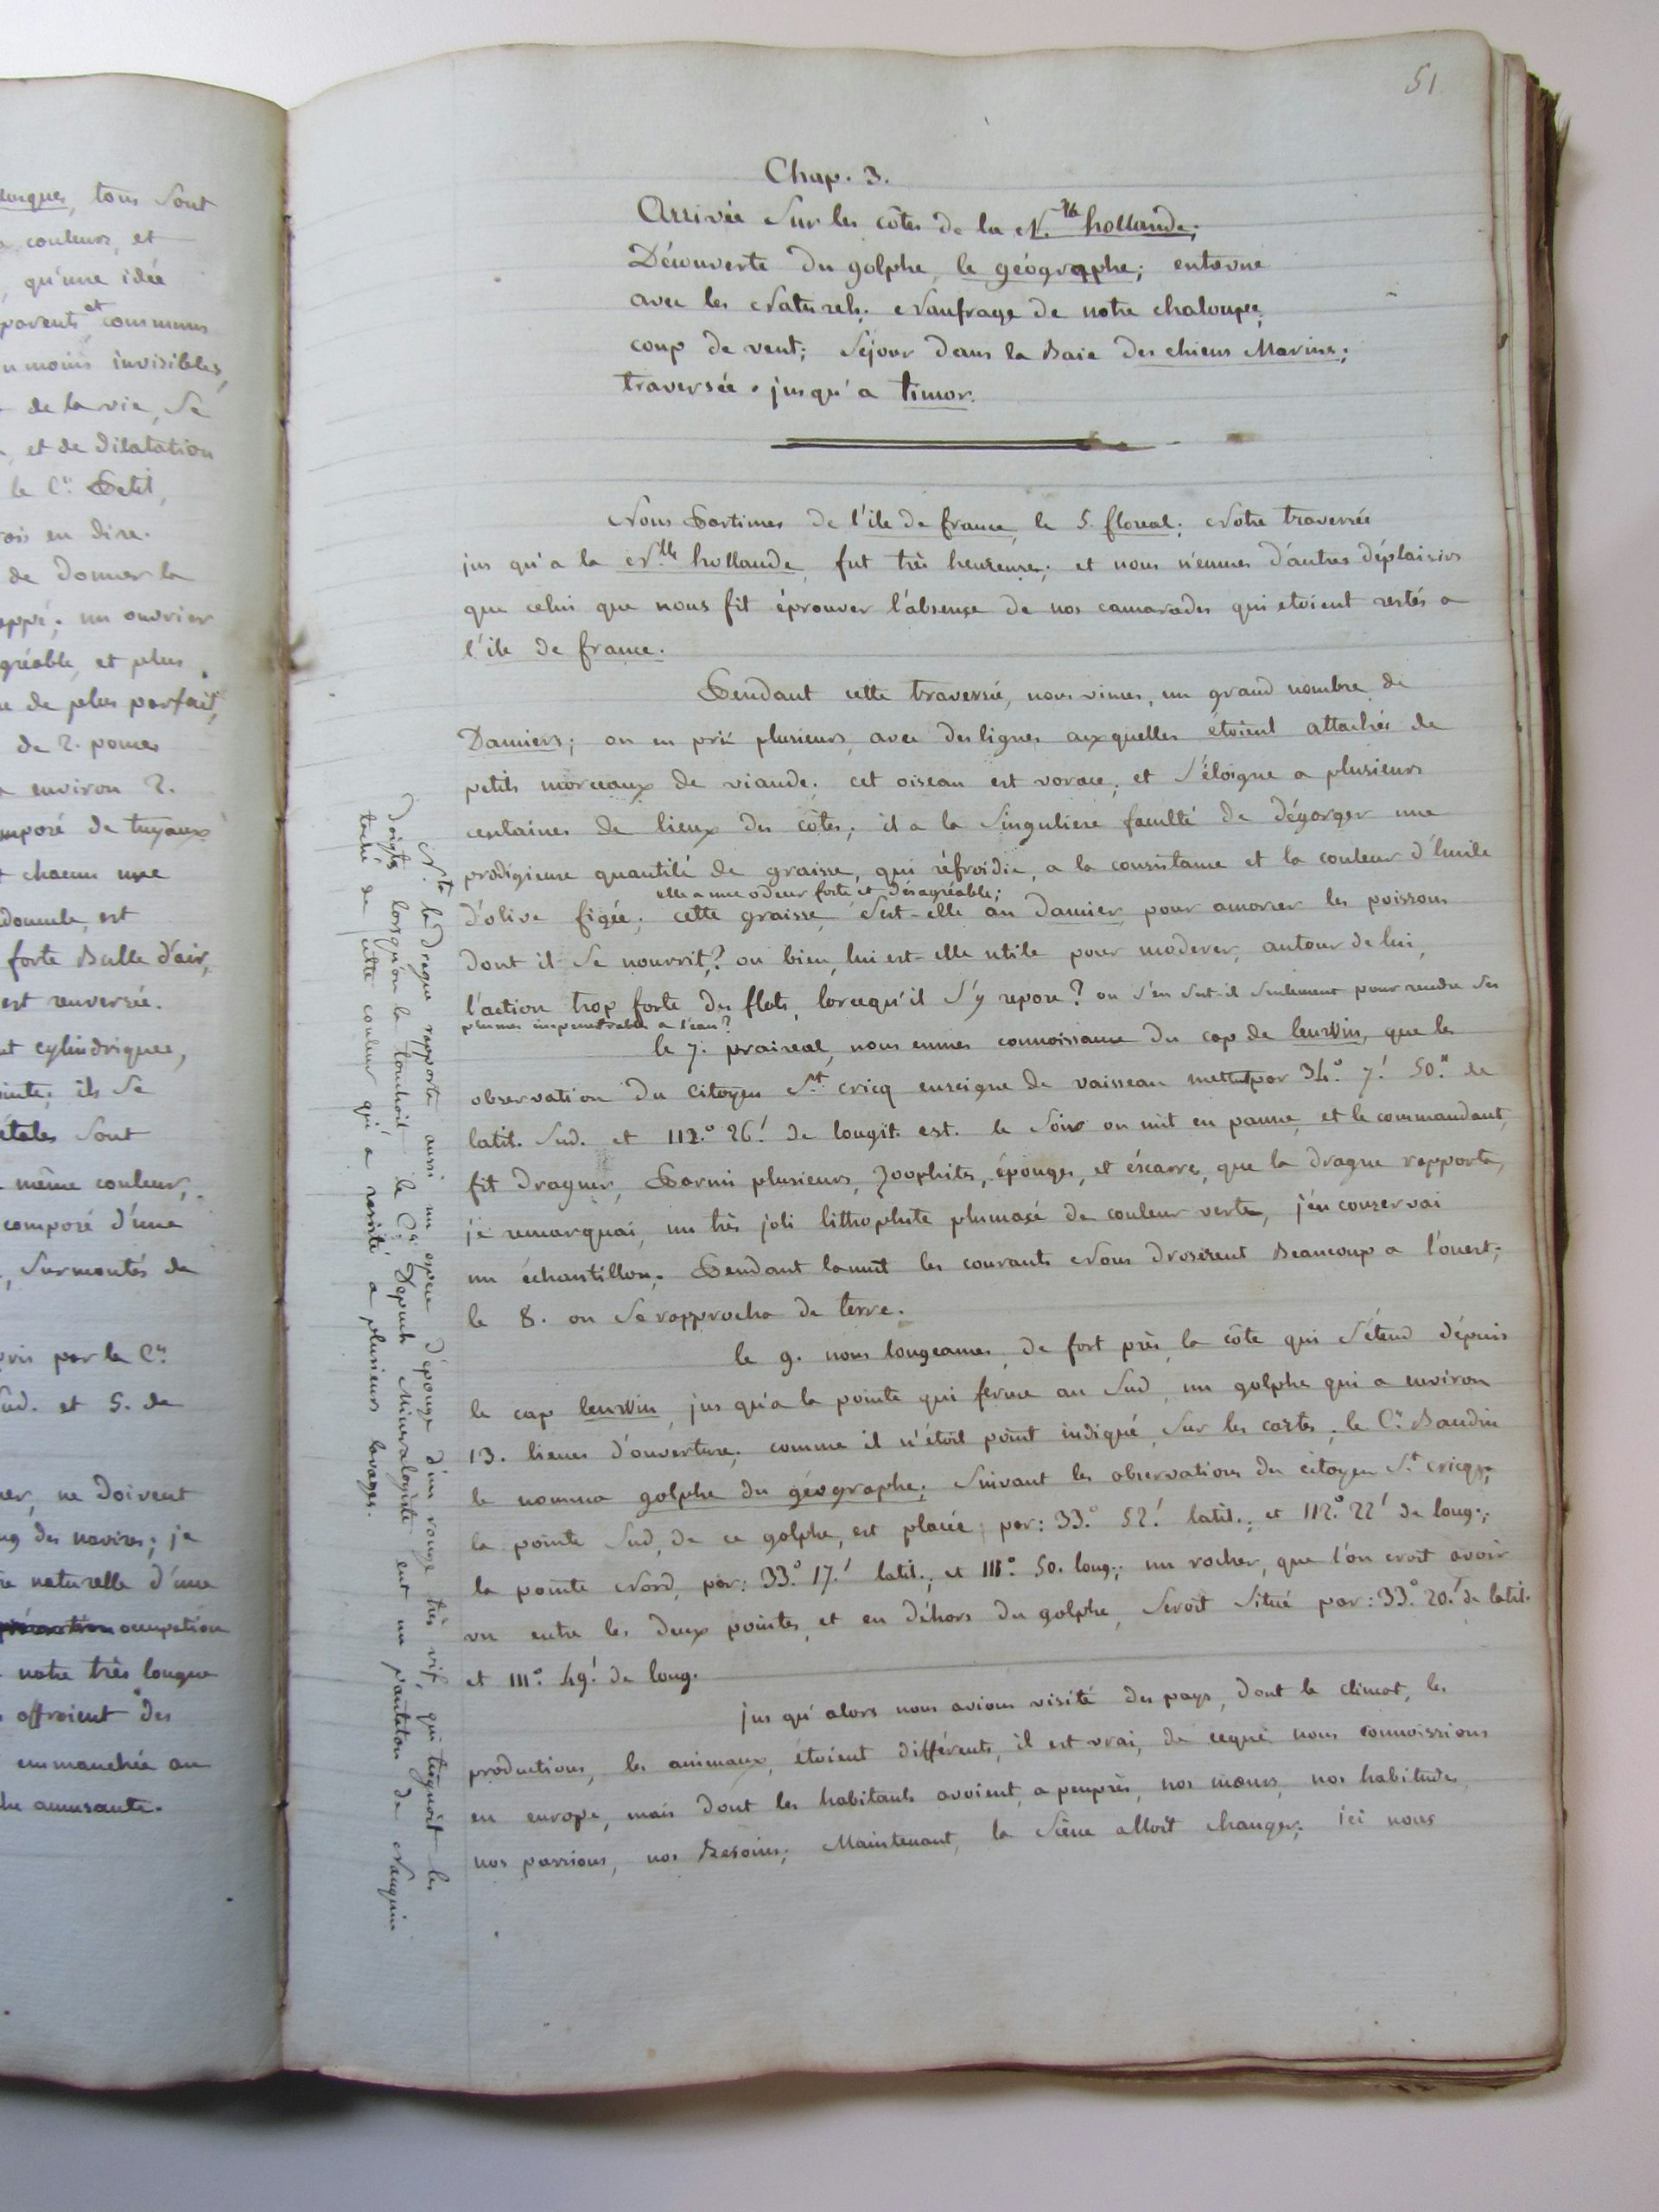 lusques, tous Sont
couleurs, et
, qu'une idée
parents et communs
u moins invisibles,
de la vie, Se
, et de dilatation
le C.en Petit,
rois en dire.
de donner la
appé; un ouvrier
gréable, et plus
de plus parfait,
de 2. pouces
environ 2.
mposé de tuyaux
chacun une
est
forte Bulle d'air,
est renversée.
nt cylindriques,
ils Se
étales Sont
même couleur,
composé d'une
, Surmontés de
pris par le C.en
Sud. et 5. de
ner, ne doivent
ng des navires; je
re naturelle d'une
occupation
notre très longue
offroient des
emmanchée au
amusante.
51
Chap. 3.
Arrivée Sur les côtes de la N.lle hollande;
Découverte du golphe le géographe; entrevue
avec les Naturels; Naufrage de notre chaloupe,
coup de vent; Séjour dans la Baie des chiens Marins;
traversée jusqu'a timor.
Nous Partimes de l'ile de france, le 5. floreal; Notre traversée
jus qu'a la N.lle hollande, fut très heureuse; et nous n'eumes d'autres déplaisirs
que celui que nous fit éprouver l'absençe de nos camarades qui etoient restés a
l'ile de france.
Pendant cette traversée, nous vimes, un grand nombre de
Damiers; on en prit plusieurs, avec des lignes auxquelles étoient attachés de
petits morceaux de viande; cet oiseau est vorace, et S'éloigne a plusieurs
centaines de lieux des côtes; il a la Singuliere faculté de dégorger une
prodigieuse quantité de graisse, qui réfroidie, a la consistance et la couleur d'huile
elle a une odeur forte et désagréable;
d'olive figée; cette graisse, Sert-elle au damier, pour amorcer les poissons
dont il Se nourrit? ou bien, lui est-elle utile pour moderer, autour de lui,
l'action trop forte des flots, lorsqu'il S'y repose? ou S'en Sert-il Seulement pour rendre Ses
plumes impenetrables a l'eau?
le 7. prairéal, nous eumes connoissance du cap de leuwin, que les
observation du citoyen S.t cricq enseigne de vaisseau mettent par 34.° 7.' 50." de
latit. Sud. et 112.° 26.' de longit. est. le Soir on mit en panne, et le commandant,
fit draguer, Parmi plusieurs, Zoophites, éponges, et éscarres, que la drague rapporta,
je remarquai, un très joli lithophite plumacé de couleur verte, j'en conservai
un échantillon. Pendant la nuit les courants Nous drossirent Beaucoup a l'ouest;
le 8. on Se rapprocha de terre.
le 9. nous longeames, de fort près, la côte qui S'étend dépuis
le cap leuwin, jus qu'a la pointe qui ferme au Sud, un golphe qui a environ
13. lieues d'ouverture; comme il n'étoit point indiqué, Sur les cartes, le C.en Baudin
le nomma golphe du géographe; Suivant les observations du citoyen S.t cricq,
la pointe Sud, de ce golphe, est placée; par: 33.° 52.' latit.; et 112.° 22' de long.;
la pointe Nord, par: 33.° 17.' latit.; et 111.° 50. long.; un rocher, que l'on croit avoir
vu entre les deux pointes, et en déhors du golphe, Seroit Situé par: 33.° 20.' de latit.
et 111.° 49.' de long.
jus qu'alors nous avions visité des pays, dont le climat, les
productions, les animaux, étoient différents, il est vrai, de ceque nous connoissions
en europe, mais dont les habitants avoient, a peuprès, nos mœurs, nos habitudes,
nos passions, nos Besoins; Maintenant, la Scène alloit changer; ici nous
N.te la drague rapporta aussi un espece d'éponge d'un rouge très vif, qui teignoit les
doigts lorsqu'on la touchoit le C.en Depuch Mineralogiste eut un pantalon de Nanquin
taché de cette couleur qui a resisté a plusieurs lavages.